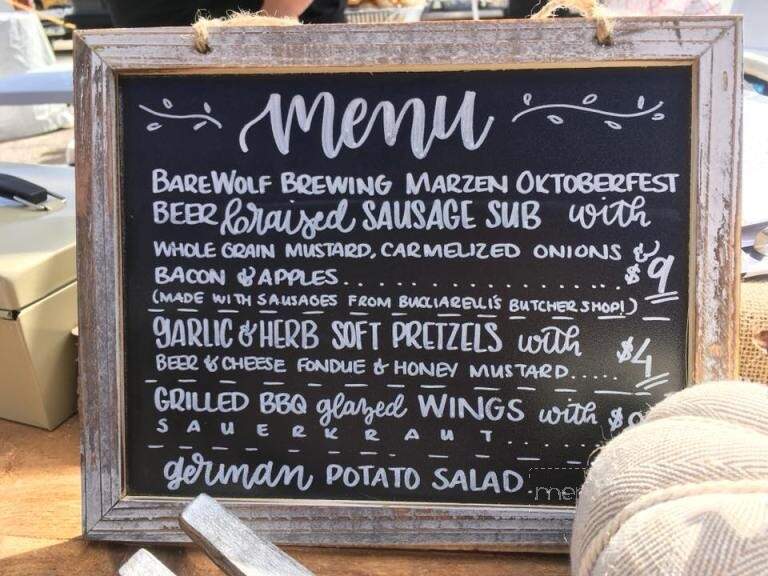 menu
BAREWOLF BREWING MARZEN OKTOBERFEST
BEER braised SAUSAGE SUB with
WHOLE GRAIN MUSTARD, CARMELIZED ONIONS &
BACON & APPLES . . . . . . . . . . . . . . . . $9
(MADE WITH SAUSAGES FROM BUCCIARELLI'S BUTCHER SHOP!)
GARLIC & HERB SOFT PRETZELS with
BEER & CHEESE FONDUE & HONEY MUSTARD..... $4
GRILLED BBQ glazed WINGS with $
SAUERKRAUT......
german POTATO SALAD.